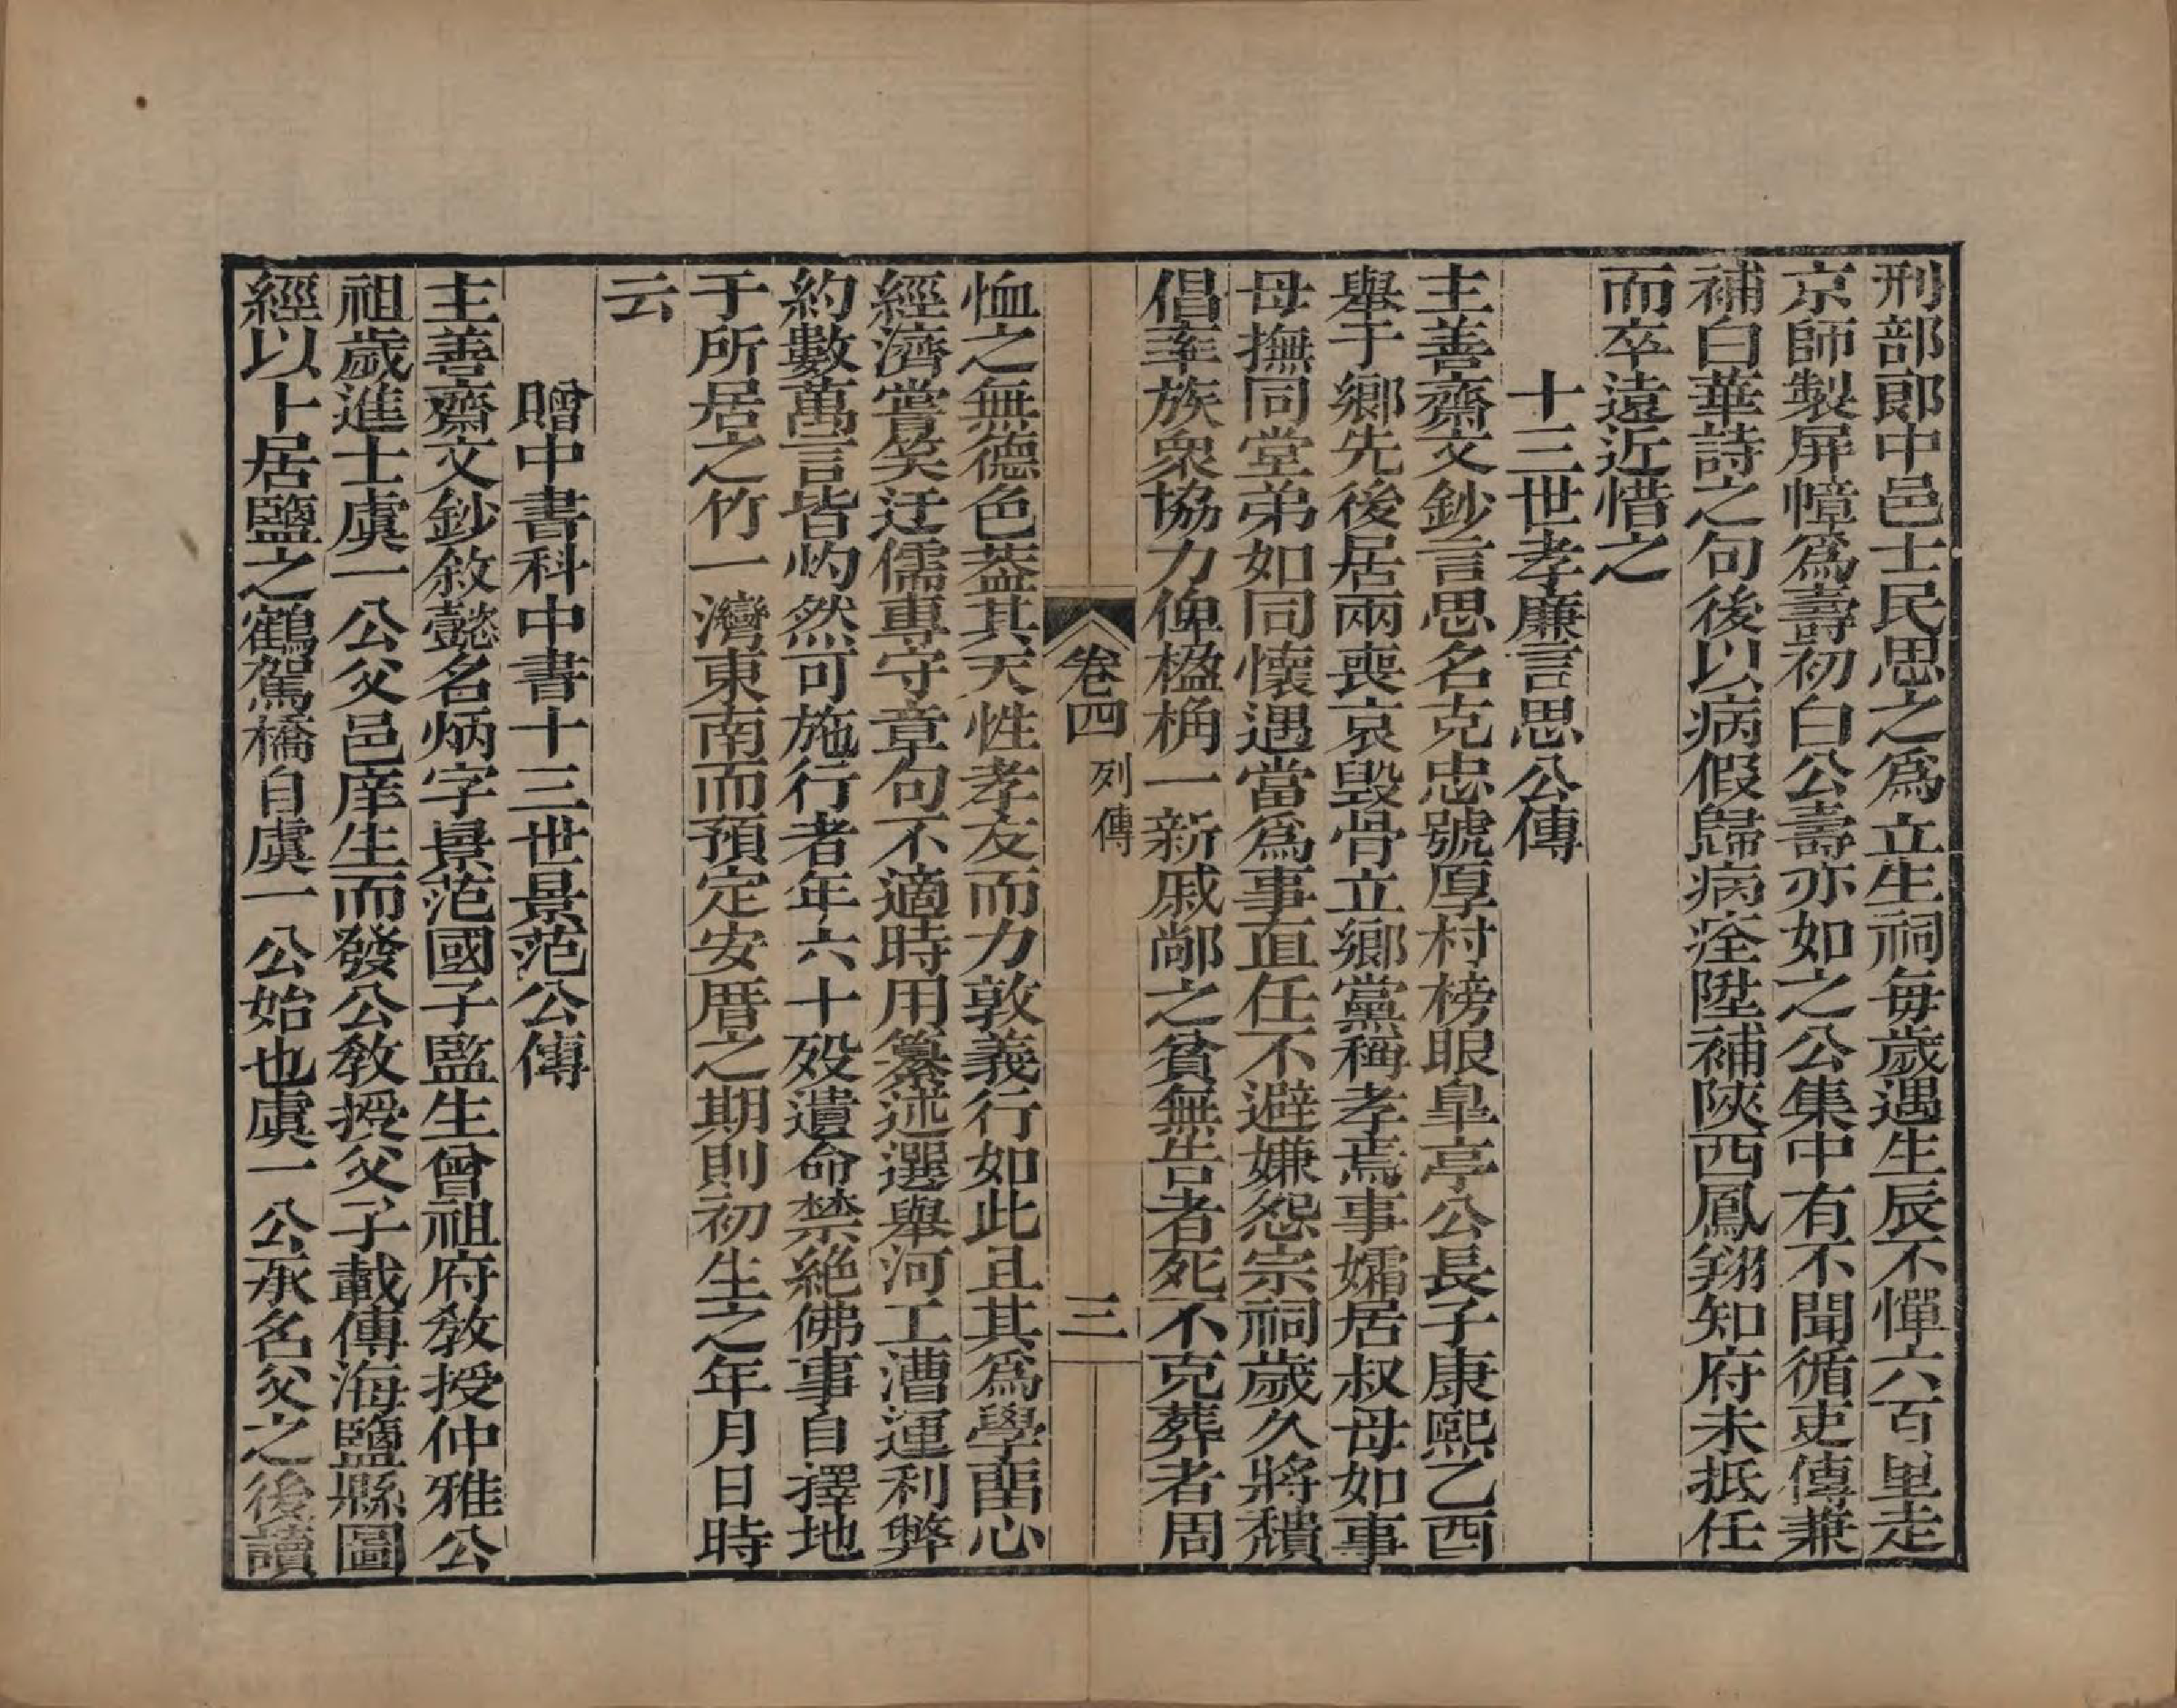 刑部郞中邑士民思之爲立生祠每歲遇生辰不憚六百里走
京師製屛幛爲壽初白公壽亦如之公集中有不聞循吏傳兼
補白華詩之句後以病假歸病痊陞補陝西鳳翔知府未抵任
而卒遠近惜之
十三世孝廉言思公傳
主善齋文鈔言思名克忠號厚村榜眼皐亭公長子康熙乙酉
舉于鄉先後居兩喪哀毀骨立鄉黨稱孝焉事孀居叔母如事
母撫同堂弟如同懷遇當爲事直任不避嫌怨宗祠歲久將頹
倡率族衆協力俾楹桷一新戚鄰之貧無告者死不克葬者周
卷四 列傳 三
恤之無德色葢其天性孝友而力敦義行如此且其爲學畱心
經濟嘗笑迂儒專守章句不適時用纂述選舉河工漕運利弊
約數萬言皆灼然可施行者年六十歿遺命禁絶佛事自擇地
于所居之竹一灣東南而預定安厝之期則初生之年月日時
云
贈中書科中書十三世景范公傳
主善齋文鈔敘懿名炳字景范國子監生曾祖府敎授仲雅公
祖歲進士虞一公父邑庠生而發公敎授父子載傳海鹽縣圖
經以卜居鹽之鶴駕橋自虞一公始也虞一公承名父之後讀